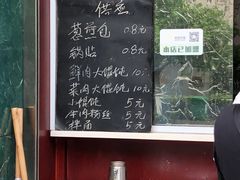 供应
葱煎包 0.8元
锅贴 0.8元
鲜肉大馄饨 10元
菜肉大馄饨 10元
小馄饨 5元
牛肉粉丝 5元
拌面 5元
本店已加盟